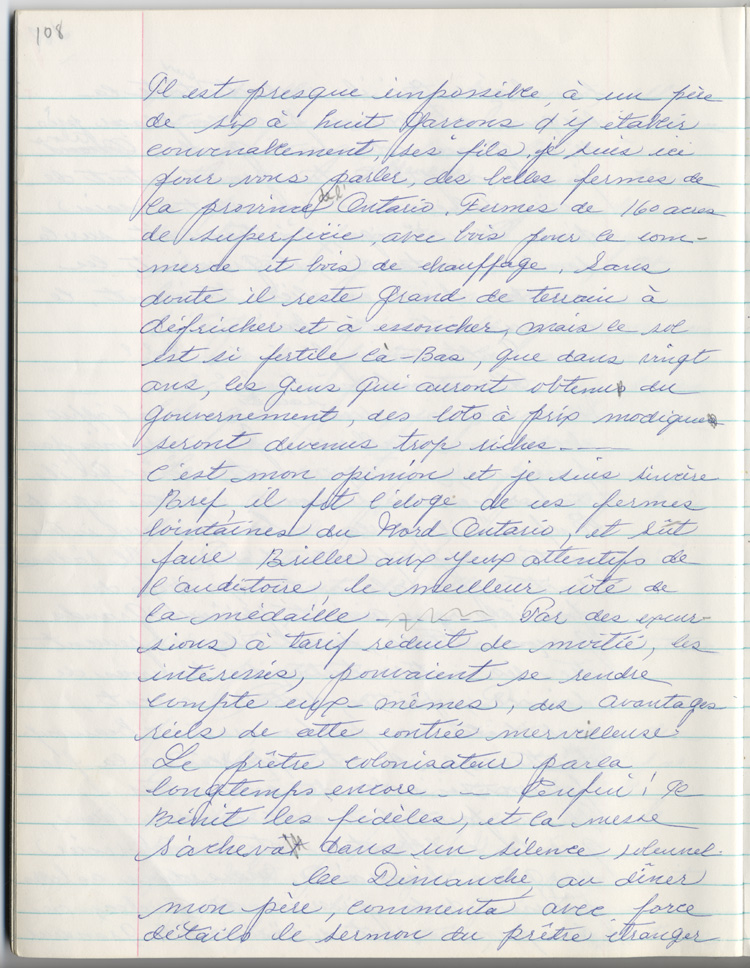 108
Il est presque impossible, à un père
de six à huit garcons d'y établir
convenablement, ses fils, je suis ici
pour vous parler, des belles fermes de
la province de l' Ontario. Fermes de 160 acres
de superficie, avec bois pour le com-
merce et bois de chauffage. Sans
doute il reste grand de terrain à
défricher et à essoucher, mais le sol
est si fertile là-Bas, que dans vingt
ans, les gens qui auront obtenu du
gouvernement, des lots à prix modique
seront devenus trop riches ---
C'est mon opinion et je suis sincère
Bref, il fit l'éloge de ces fermes
lointaines du Nord Ontario, et sût
faire Briller aux yeux attentifs de
l'auditoire, le meilleur côté de
la médaille --- Par des excur-
sions à tarif réduit de moitié, les
intéressés, pouvaient se rendre
compte eux-mêmes, des avantages
réels de cette contrée merveilleuse.
Le prêtre colonisateur parla
longtemps encore. -- Enfin! Il
Bénit les fidèles, et la messe
s'acheva dans un silence solennel.
Ce Dimanche, au dîner
mon père, commenta avec force
détails le sermon du prêtre étranger